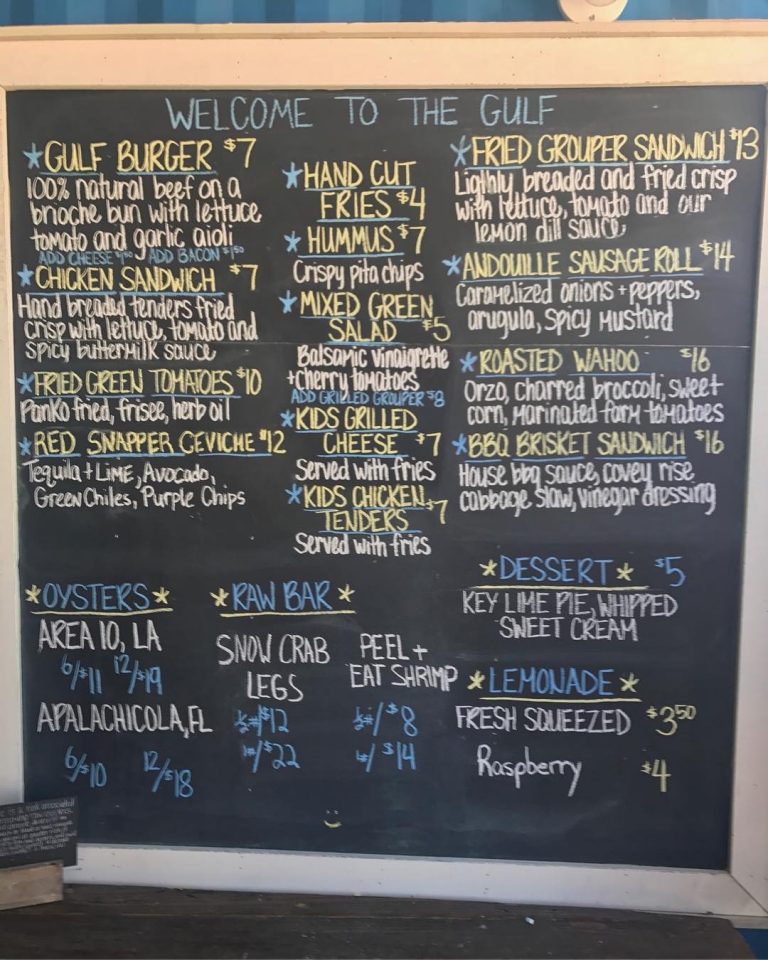 WELCOME TO THE GULF
*GULF BURGER $7
100% natural beef on a
brioche bun with lettuce
tomato and garlic aioli
ADD CHEESE ADD BACON
*CHICKEN SANDWICH $7
Hand breaded tenders fried
crisp with lettuce, tomato and
spicy buttermilk sauce
*FRIED GREEN TOMATOES $10
Panko fried, frisee, herb oil
*RED SNAPPER CEVICHE $12
Tequila + Lime, Avocado,
Green Chiles, Purple Chips
*HAND CUT
FRIES $4
*HUMMUS $7
Crispy pita chips
*MIXED GREEN
SALAD $5
Balsamic vinaigrette
+cherry tomatoes
ADD GRILLED GROUPER $8
*KIDS GRILLED
CHEESE $7
Served with fries
*KIDS CHICKEN
TENDERS $7
Served with fries
*FRIED GROUPER SANDWICH $13
Ligthly breaded and fried crisp
with lettuce, tomato and our
lemon dill sauce
*ANDOUILLE SAUSAGE ROLL $14
Caramelized onions + peppers,
arugula, spicy mustard
*ROASTED WAHOO $16
Orzo, charred broccoli, sweet
corn, marinated farm tomatoes
*BBQ BRISKET SANDWICH $16
House bbq sauce, covey rise
cabbage slaw, vinegar dressing
*OYSTERS*
AREA 10, LA
6/$11 12/$19
APALACHICOLA, FL
6/$10 12/$18
*RAW BAR*
SNOW CRAB
LEGS
½#/$12
1#/$22
PEEL +
EAT SHRIMP
½#/$8
1#/$14
*DESSERT* $5
KEY LIME PIE, WHIPPED
SWEET CREAM
*LEMONADE*
FRESH SQUEEZED $3.50
Raspberry $4